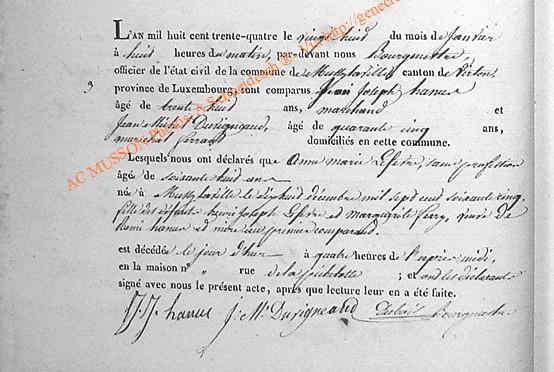 L'AN mil huit cent trente-quatre le vingt huid du mois de Janvier
à huit heures du matin, par-devant nous Bourgmettre
officier de l'état civil de la commune de Mussylaville canton de Virton,
3 province de Luxembourg, sont comparus Jean Joseph hanus
âgé de trente huid ans, marchand et
Jean Michel Dusigneaud, âgé de quarante cinq ans,
marechal ferrant domiciliés en cette commune.
Lesquels nous ont déclarés que anne marie Lefevre, sans profession
âgée de soixante huid ans
née à Mussylaville le dixhuid décembre mil sept cent soixante cinq,
fille des défunts henri Joseph Lefevre et marguerite ferry, veuve de
Remi hanus et mère au premier comparant.
est décédée le jour d'hier à quatre heures de l'après midi,
en la maison n° " rue de la ; et ont les déclarants
signé avec nous le présent acte, après que lecture leur en a été faite.
J.J. hanus J. M. Dusigneaud Bourgmestre
AC MUSSON Photos & Schneidesch © - V1 http://genec